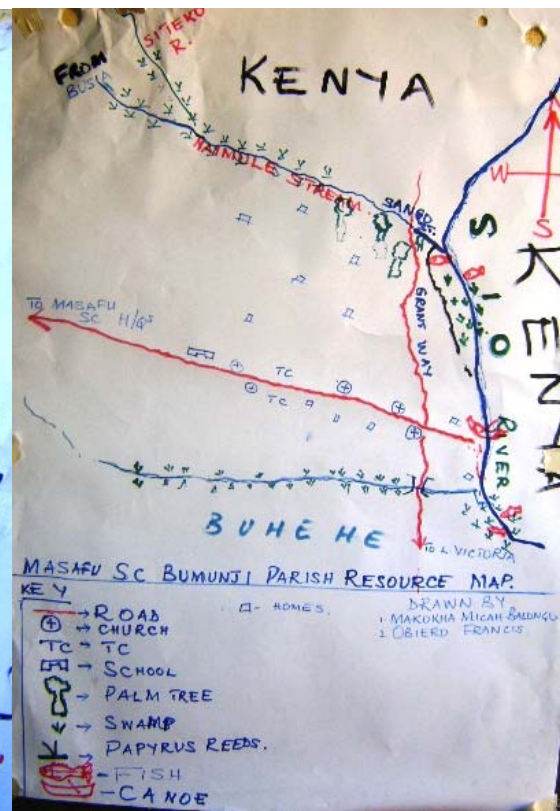 SITEKO
R.
FROM
BUSIA
KENYA
NAIMULE STREAM
SANGE
W
S
SIO
RIVER
KENYA
GRANT WAY
TO MASAFU
SC H/QS
TC
TC
BUHEHE
TO L. VICTORIA
MASAFU SC BUMUNJI PARISH RESOURCE MAP.
KEY
→ ROAD
→ CHURCH
TC → TC
→ SCHOOL
→ PALM TREE
→ SWAMP
→ PAPYRUS REEDS.
- FISH
- CANOE
- HOMES.
DRAWN BY
1. MAKOKHA MICAH BALONGU
2 OBIERO FRANCIS